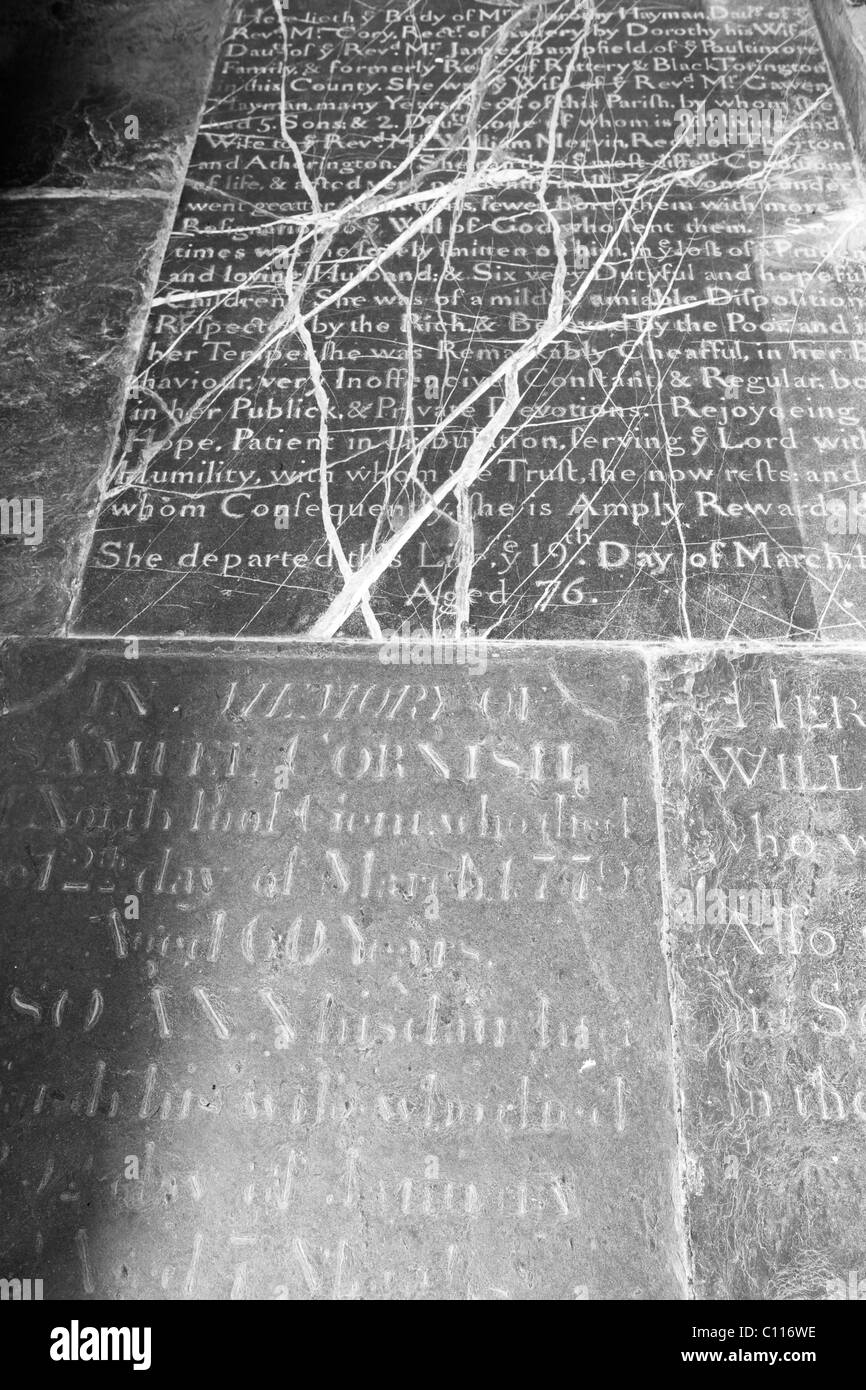 Here lieth yᵉ Body of Mʳˢ Dorothy Hayman, Dauʳ of yᵉ
Revᵈ Mʳ Cory, Rectʳ of Rattery by Dorothy his Wife
Dauʳ of yᵉ Revᵈ Mʳ James Bampfield, of yᵉ Poultimore
Family, & formerly Rectʳ of Rattery & Black Torington
in his County. She was yᵉ Wife of yᵉ Revᵈ Mʳ Gawen
Hayman, many Years Rectʳ of this Pariſh, by whom ſhe
had 5 Sons, & 2 Dauʳˢ, one of whom is ſtill living and
Wife to yᵉ Revᵈ Mʳ William Nerſon, Rectʳ of
and Atherington. She ran thro' yᵉ moſt diffᵉⁿᵗ Conditions
of life, & acted very in all. Few Women under
went greater, fewer bore them with more
Reſignation to yᵉ Will of God who ſent them.
times was ſhe ſorely ſmitten by him, in yᵉ loſs of a Prudent
and loving Husband; & Six very Dutyful and hopeful
Children. She was of a mild & amiable Diſpoſition
Reſpected by the Rich, & Beloved by the Poor, and in
her Temper ſhe was Remarkably Chearful, in her Be
haviour, very Inoffenſive, Conſtant & Regular, bo
in her Publick, & Private Devotions. Rejoyceing
Hope, Patient in Tribulation, ſerving yᵉ Lord with
Humility, with whom we Truſt, ſhe now reſts: and
whom Conſequently ſhe is Amply Rewarded
She departed this Life, yᵉ 19ᵗʰ Day of March,
Aged 76.
IN MEMORY OF
SAMUEL CORNISH
of North Pool Gent. who died
12ᵗʰ day of March 177
Aged 60 Years.
ALSO ANN his daughter
Sarah his wife who died
day of January
HER
WILL
who w
Alſo
in the
alamy
Image ID: C116WE
www.alamy.com